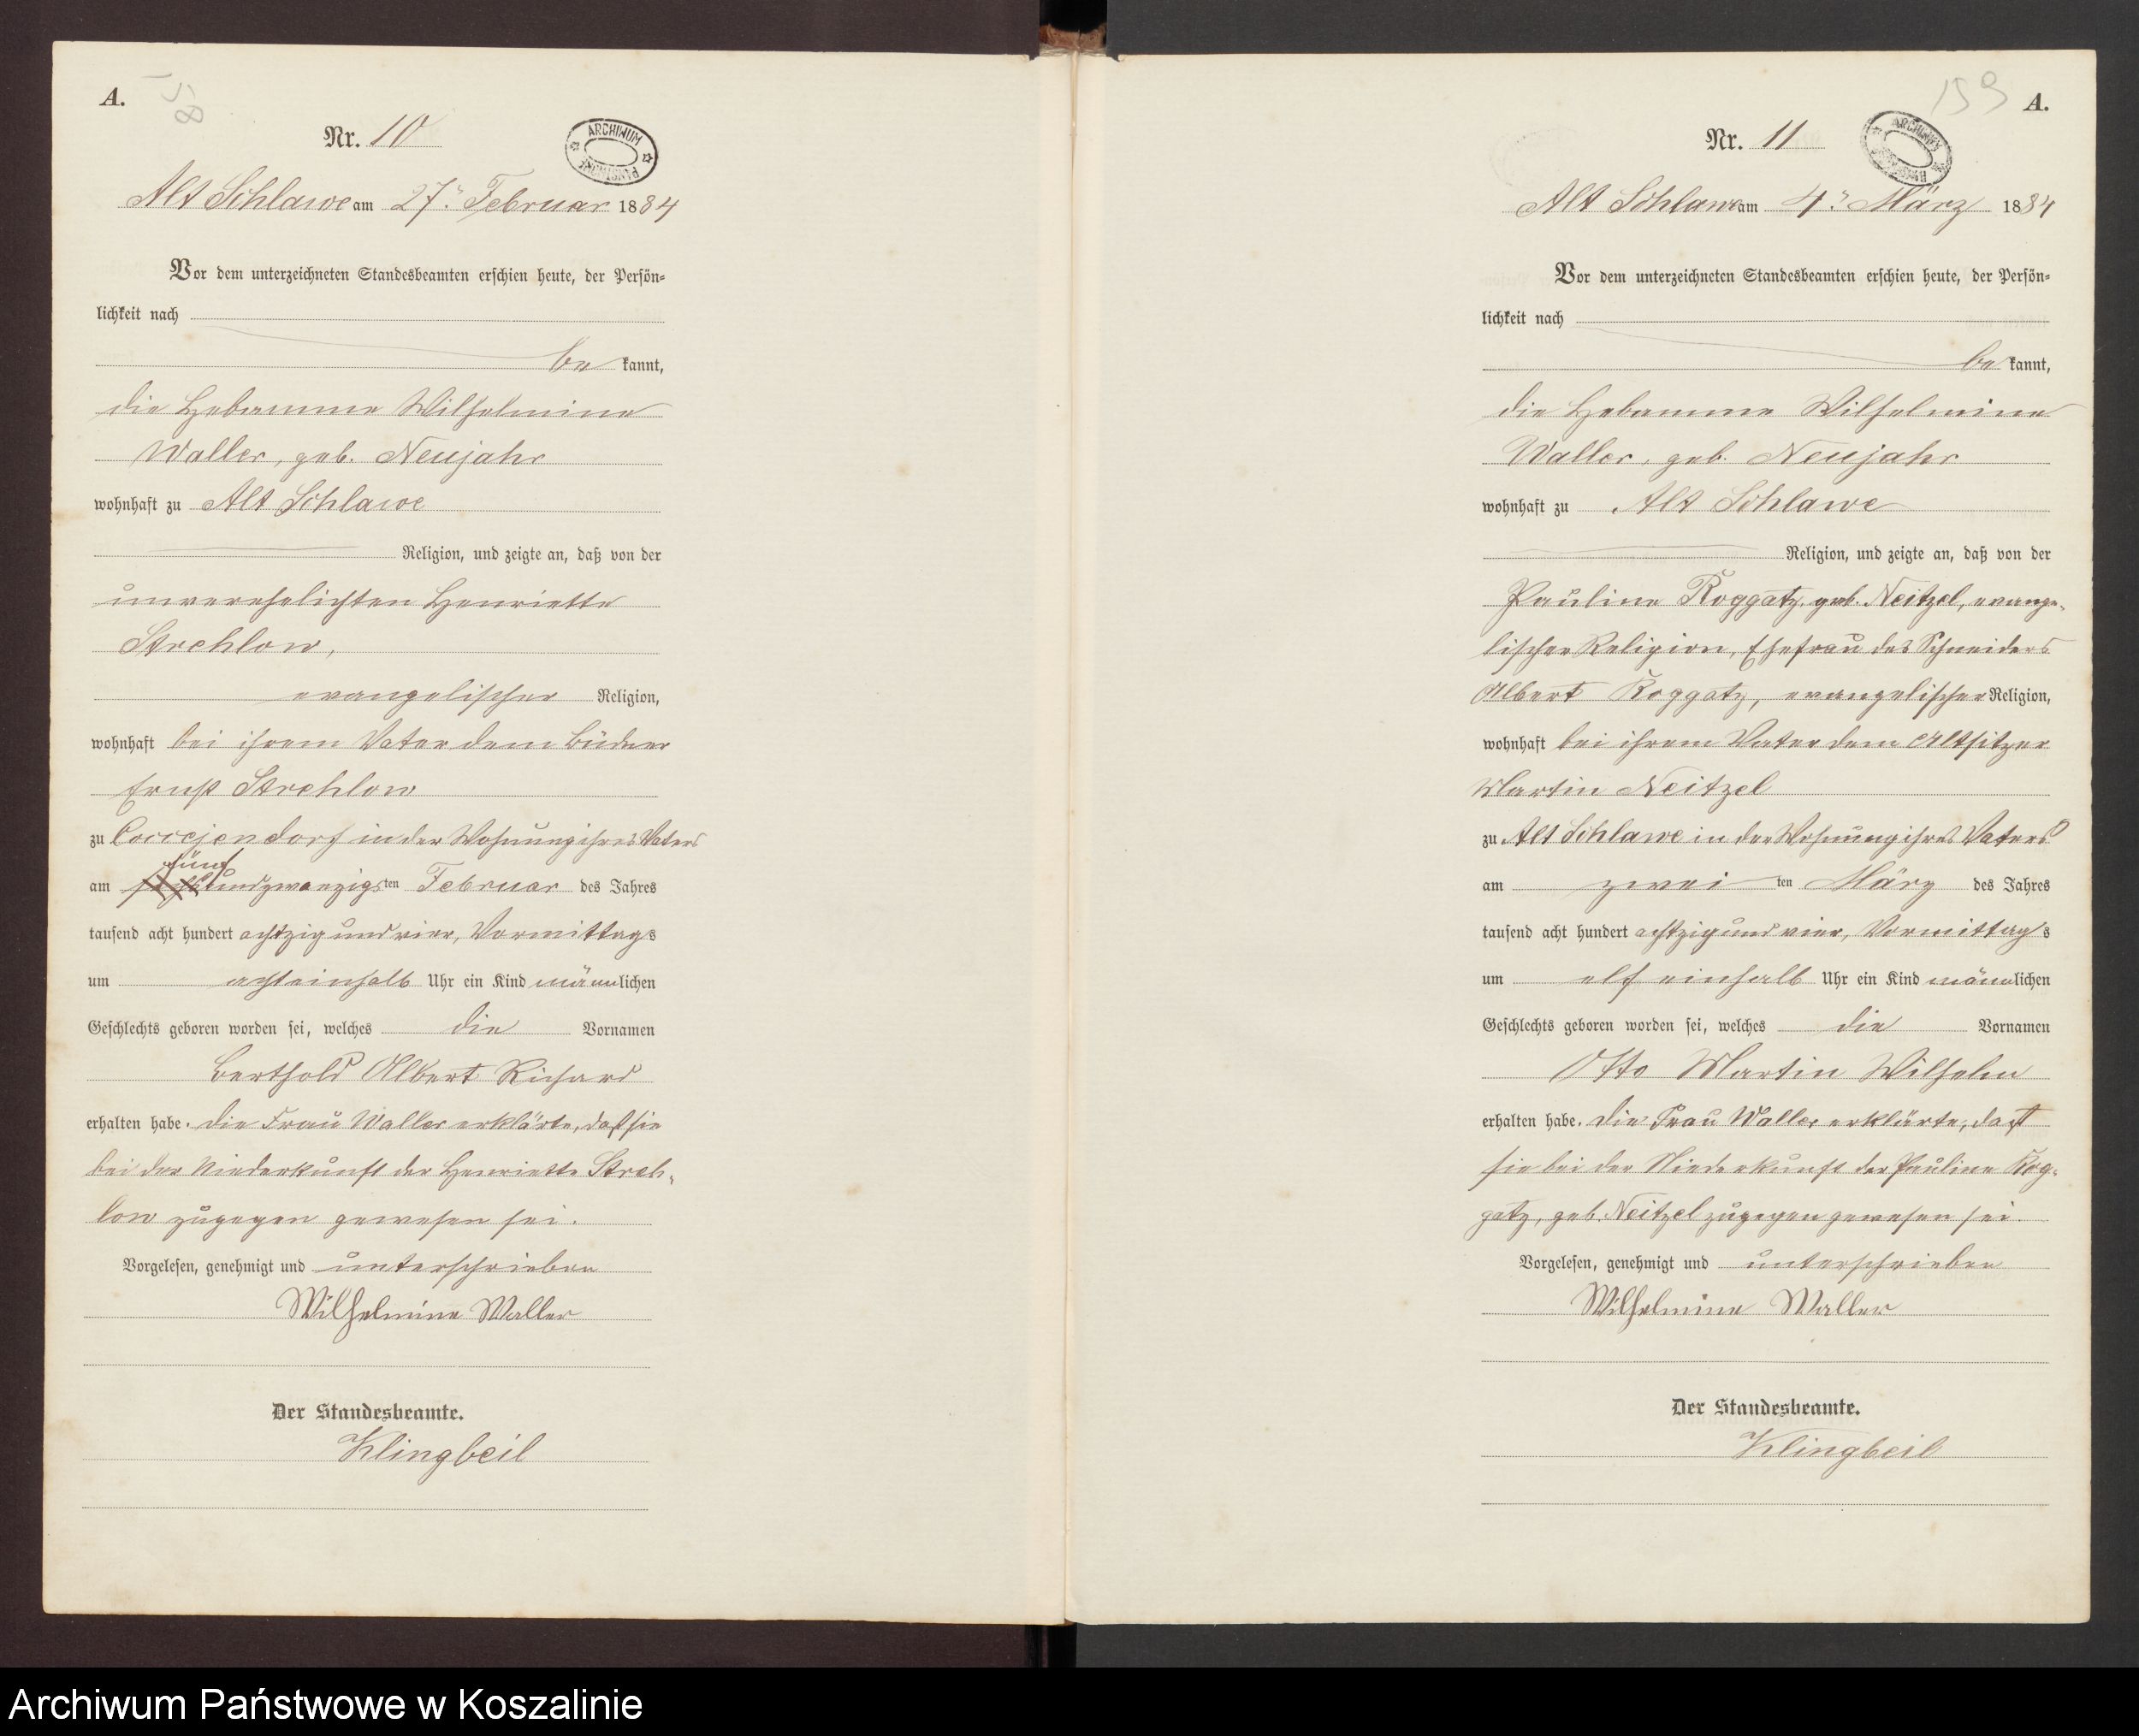 A.
58
Nr. 10
ARCHIWUM
PAŃSTWOWE
Alt Schlawe am 27. Februar 1884
Vor dem unterzeichneten Standesbeamten erschien heute, der Persön-
lichkeit nach
be kannt,
die Hebamme Wilhelmine
Waller, geb. Neujahr
wohnhaft zu Alt Schlawe
Religion, und zeigte an, daß von der
unverehelichten Henriette
Strehlow,
evangelischer Religion,
wohnhaft bei ihrem Vater dem Büdner
Ernst Strehlow
zu Coccejendorf in der Wohnung ihres Vaters
fünf
am sechsundzwanzigsten Februar des Jahres
tausend acht hundert achtzig und vier, Vormittags
um achteinhalb Uhr ein Kind männlichen
Geschlechts geboren worden sei, welches die Vornamen
Berthold Albert Richard
erhalten habe. Die Frau Waller erklärte, daß sie
bei der Niederkunft der Henriette Streh-
low zugegen gewesen sei.
Vorgelesen, genehmigt und unterschrieben
Wilhelmine Waller
Der Standesbeamte.
Klingbeil
159
A.
Nr. 11
ARCHIWUM
Alt Schlawe am 4. März 1884
Vor dem unterzeichneten Standesbeamten erschien heute, der Persön-
lichkeit nach
be kannt,
die Hebamme Wilhelmine
Waller, geb. Neujahr
wohnhaft zu Alt Schlawe
Religion, und zeigte an, daß von der
Pauline Roggatz, geb. Neitzel, evange-
lischer Religion, Ehefrau des Schneiders
Albert Roggatz, evangelischer Religion,
wohnhaft bei ihrem Vater dem Altsitzer
Martin Neitzel
zu Alt Schlawe in der Wohnung ihres Vaters
am zwei ten März des Jahres
tausend acht hundert achtzig und vier, Vormittags
um elf einhalb Uhr ein Kind männlichen
Geschlechts geboren worden sei, welches die Vornamen
Otto Martin Wilhelm
erhalten habe. Die Frau Waller erklärte, daß
sie bei der Niederkunft der Pauline Rog-
gatz, geb. Neitzel zugegen gewesen sei.
Vorgelesen, genehmigt und unterschrieben
Wilhelmine Waller
Der Standesbeamte.
Klingbeil
Archiwum Państwowe w Koszalinie